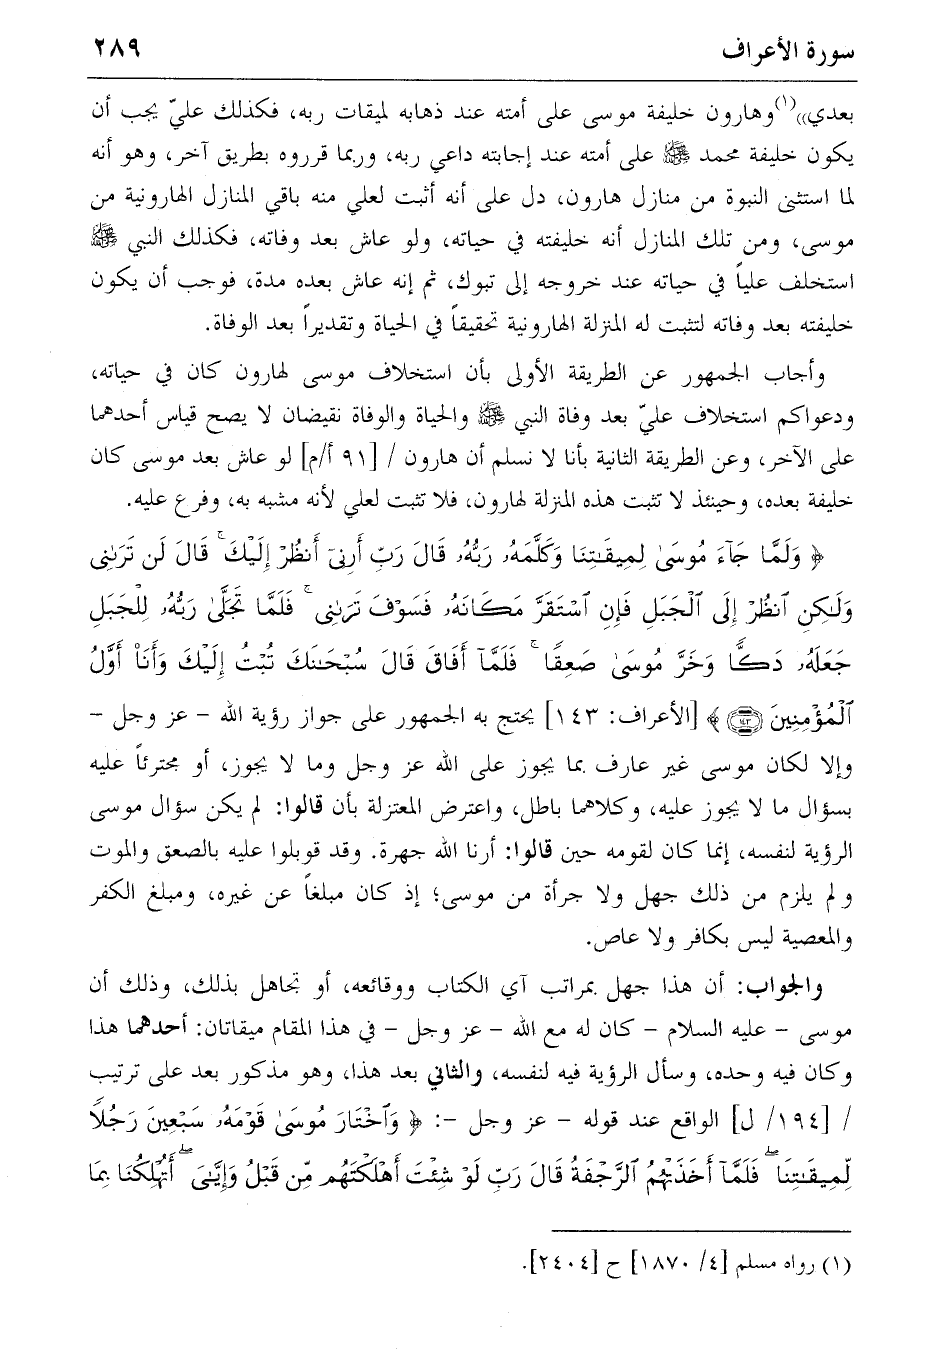 سورة الأعراف ٢٨٩
بعدي))(١) وهارون خليفة موسى على أمته عند ذهابه لميقات ربه، فكذلك عليّ يجب أن
يكون خليفة محمد ﷺ على أمته عند إجابته داعي ربه، وربما قرروه بطريق آخر، وهو أنه
لما استثنى النبوة من منازل هارون، دل على أنه أثبت لعلي منه باقي المنازل الهارونية من
موسى، ومن تلك المنازل أنه خليفته في حياته، ولو عاش بعد وفاته، فكذلك النبي ﷺ
استخلف علياً في حياته عند خروجه إلى تبوك، ثم إنه عاش بعده مدة، فوجب أن يكون
خليفته بعد وفاته لتثبت له المنزلة الهارونية تحقيقاً في الحياة وتقديراً بعد الوفاة.
وأجاب الجمهور عن الطريقة الأولى بأن استخلاف موسى لهارون كان في حياته،
ودعواكم استخلاف عليّ بعد وفاة النبي ﷺ والحياة والوفاة نقيضان لا يصح قياس أحدهما
على الآخر، وعن الطريقة الثانية بأنا لا نسلم أن هارون / [٩١ أ/م] لو عاش بعد موسى كان
خليفة بعده، وحينئذ لا تثبت هذه المنزلة لهارون، فلا تثبت لعلي لأنه مشبه به، وفرع عليه.
﴿ وَلَمَّا جَآءَ مُوسَىٰ لِمِيقَٰتِنَا وَكَلَّمَهُۥ رَبُّهُۥ قَالَ رَبِّ أَرِنِىٓ أَنظُرْ إِلَيْكَ ۚ قَالَ لَن تَرَىٰنِى
وَلَٰكِنِ ٱنظُرْ إِلَى ٱلْجَبَلِ فَإِنِ ٱسْتَقَرَّ مَكَانَهُۥ فَسَوْفَ تَرَىٰنِى ۚ فَلَمَّا تَجَلَّىٰ رَبُّهُۥ لِلْجَبَلِ
جَعَلَهُۥ دَكًّا وَخَرَّ مُوسَىٰ صَعِقًا ۚ فَلَمَّآ أَفَاقَ قَالَ سُبْحَٰنَكَ تُبْتُ إِلَيْكَ وَأَنَا۠ أَوَّلُ
ٱلْمُؤْمِنِينَ ١٤٣ ﴾ [الأعراف: ١٤٣] يحتج به الجمهور على جواز رؤية الله - عز وجل -
وإلا لكان موسى غير عارف بما يجوز على الله عز وجل وما لا يجوز، أو مجترئاً عليه
بسؤال ما لا يجوز عليه، وكلاهما باطل، واعترض المعتزلة بأن قالوا: لم يكن سؤال موسى
الرؤية لنفسه، إنما كان لقومه حين قالوا: أرنا الله جهرة. وقد قوبلوا عليه بالصعق والموت
ولم يلزم من ذلك جهل ولا جرأة من موسى؛ إذ كان مبلغاً عن غيره، ومبلغ الكفر
والمعصية ليس بكافر ولا عاص.
والجواب: أن هذا جهل بمراتب آي الكتاب ووقائعه، أو تجاهل بذلك، وذلك أن
موسى - عليه السلام - كان له مع الله - عز وجل - في هذا المقام ميقاتان: أحدهما هذا
وكان فيه وحده، وسأل الرؤية فيه لنفسه، والثاني بعد هذا، وهو مذكور بعد على ترتيب
/ [١٩٤/ ل] الواقع عند قوله - عز وجل -: ﴿ وَٱخْتَارَ مُوسَىٰ قَوْمَهُۥ سَبْعِينَ رَجُلًا
لِّمِيقَٰتِنَا ۖ فَلَمَّآ أَخَذَتْهُمُ ٱلرَّجْفَةُ قَالَ رَبِّ لَوْ شِئْتَ أَهْلَكْتَهُم مِّن قَبْلُ وَإِيَّٰىَ ۖ أَتُهْلِكُنَا بِمَا
(١) رواه مسلم [٤/ ١٨٧٠] ح [٢٤٠٤].